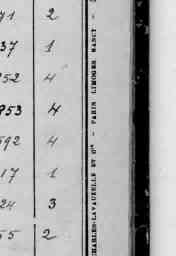 71 2
37 1
952 4
953 4
592 4
17 1
24 3
55 2
CHARLES-LAVAUZELLE ET Cie - PARIS LIMOGES NANCY -